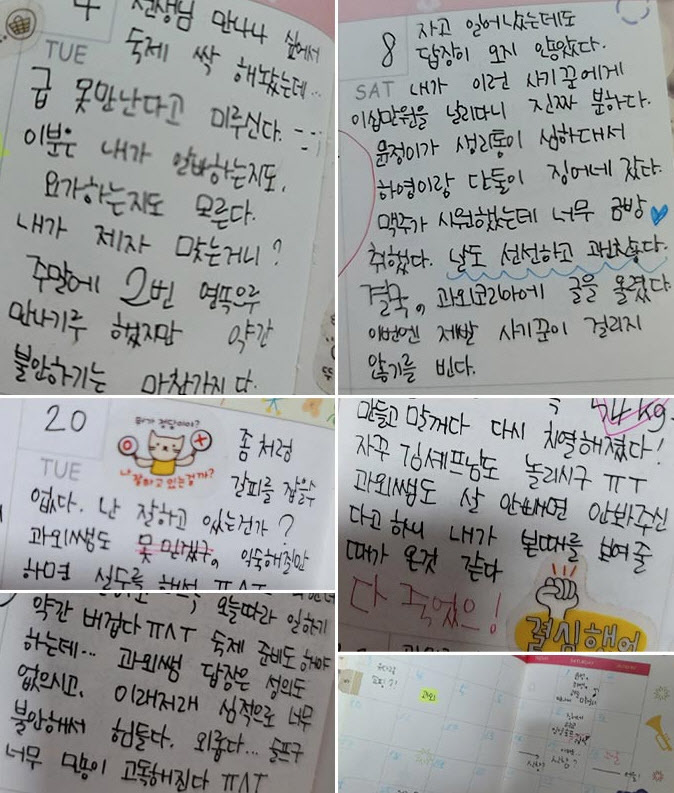 선생님 만나나 싶어서
TUE
숙제 싹 해놨는데...
급 못만난다고 미루신다. ---;
이분은 내가 알바하는지도,
요가하는지도 모른다.
내가 제자 맞는거니?
주말에 2번 연뜩으루
만나기루 했지만 약간
불안하기는 마찬가지다.
8
자고 일어났는데도
답장이 오지 않았다.
SAT 내가 이런 사기꾼에게
이십만원을 날리다니 진짜 분하다.
윤정이가 생리통이 심하대서
하영이랑 단둘이 징어네 갔다.
맥주가 시원했는데 너무 금방
취했다. 날도 선선하고 괜찮다.
결국, 과외코리아에 글을 올렸다
이번엔 제발 사기꾼이 걸리지
않기를 빈다.
20
TUE
나 잘하고 있는걸까?
좀처럼
갈피를 잡을수
없다. 난 잘하고 있는건가?
과외쌤도 못믿겠구, 익숙해질만
하면
만들고 말꺼다 다시 치열해졌다!
자꾸 김셰프님도 놀리시구 ㅠㅜ
과외쌤도 살 안빼면 안봐주신
다고 하니 내가 본때를 보여줄
때가 온것 같다
다 죽었으!
결심했어
오늘따라 일하기
약간 버겁다 ㅠㅅㅜ 숙제 준비도 해야
하는데... 과외쌤 답장은 성의도
없으시고, 이래저래 심적으로 너무
불안해서 힘들다. 외롭다... 슬프구
너무 많이 고독해진다 ㅠㅅㅜ
과외